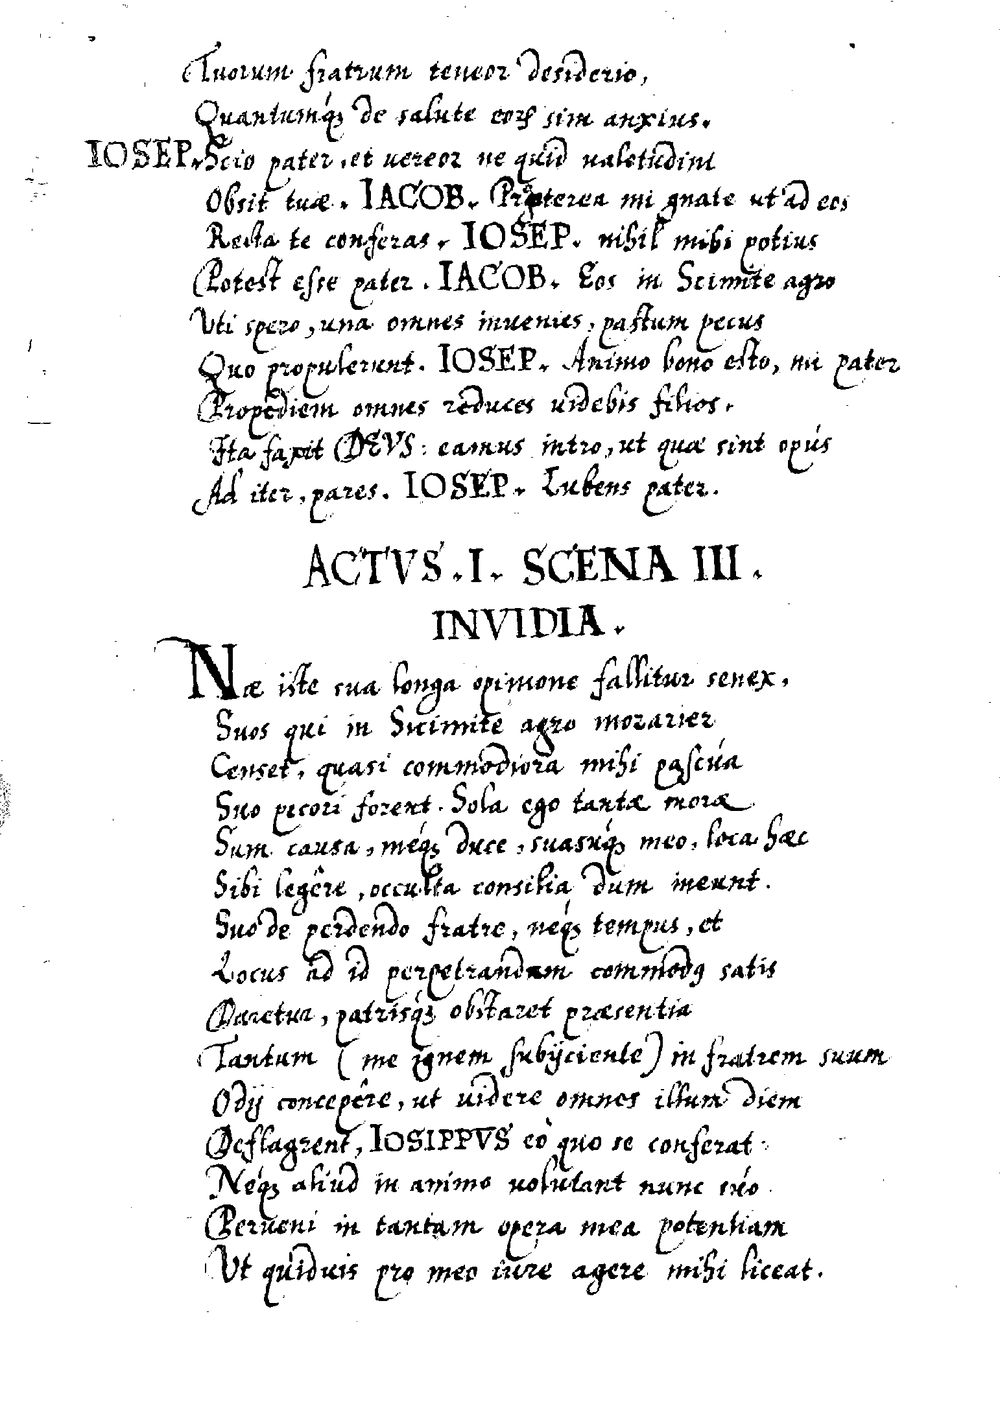 Tuorum fratrum teneor desiderio,
Quantumq́ꝫ de salute eorꝝ sim anxius.
IOSEP. Scio pater, et uereor ne quid ualetudini
Obsit tuæ. IACOB. Propterea mi gnate ut ad eos
Recta te conferas. IOSEP. nihil mihi potius
Potest esse pater. IACOB. Eos in Scimite agro
Uti spero, una omnes inuenies, pastum pecus
Quo propulerunt. IOSEP. Animo bono esto, mi pater
Propediem omnes reduces uidebis filios.
Ita faxit DEVS: eamus intro, ut quæ sint opús
Ad iter, pares. IOSEP. Lubens pater.
ACTVS. I. SCENA III.
INVIDIA.
Næ iste sua longa opinione fallitur senex,
Suos qui in Sicimite agro morarier
Censet, quasi commodiora mihi pascúa
Suo pecori forent. Sola ego tantæ moræ
Sum causa, meq́ꝫ duce, suasuq́ꝫ meo, loca hæc
Sibi legêre, occulta consilia dum ineunt.
Suo de perdendo fratre, neq́ꝫ tempus, et
Locus ad id perpetrandum commodꝯ satis
Daretur, patrisq́ꝫ obstaret præsentia
Tantum (me ignem subijciente) in fratrem suum
Odij concepêre, ut uidere omnes illum diem
Deflagrent, IOSIPPVS eò quo se conferat.
Neq́ꝫ aliud in animo uolutant nunc súo
Perueni in tantam opera mea potentiam
Ut quiduis pro meo iure agere mihi liceat.